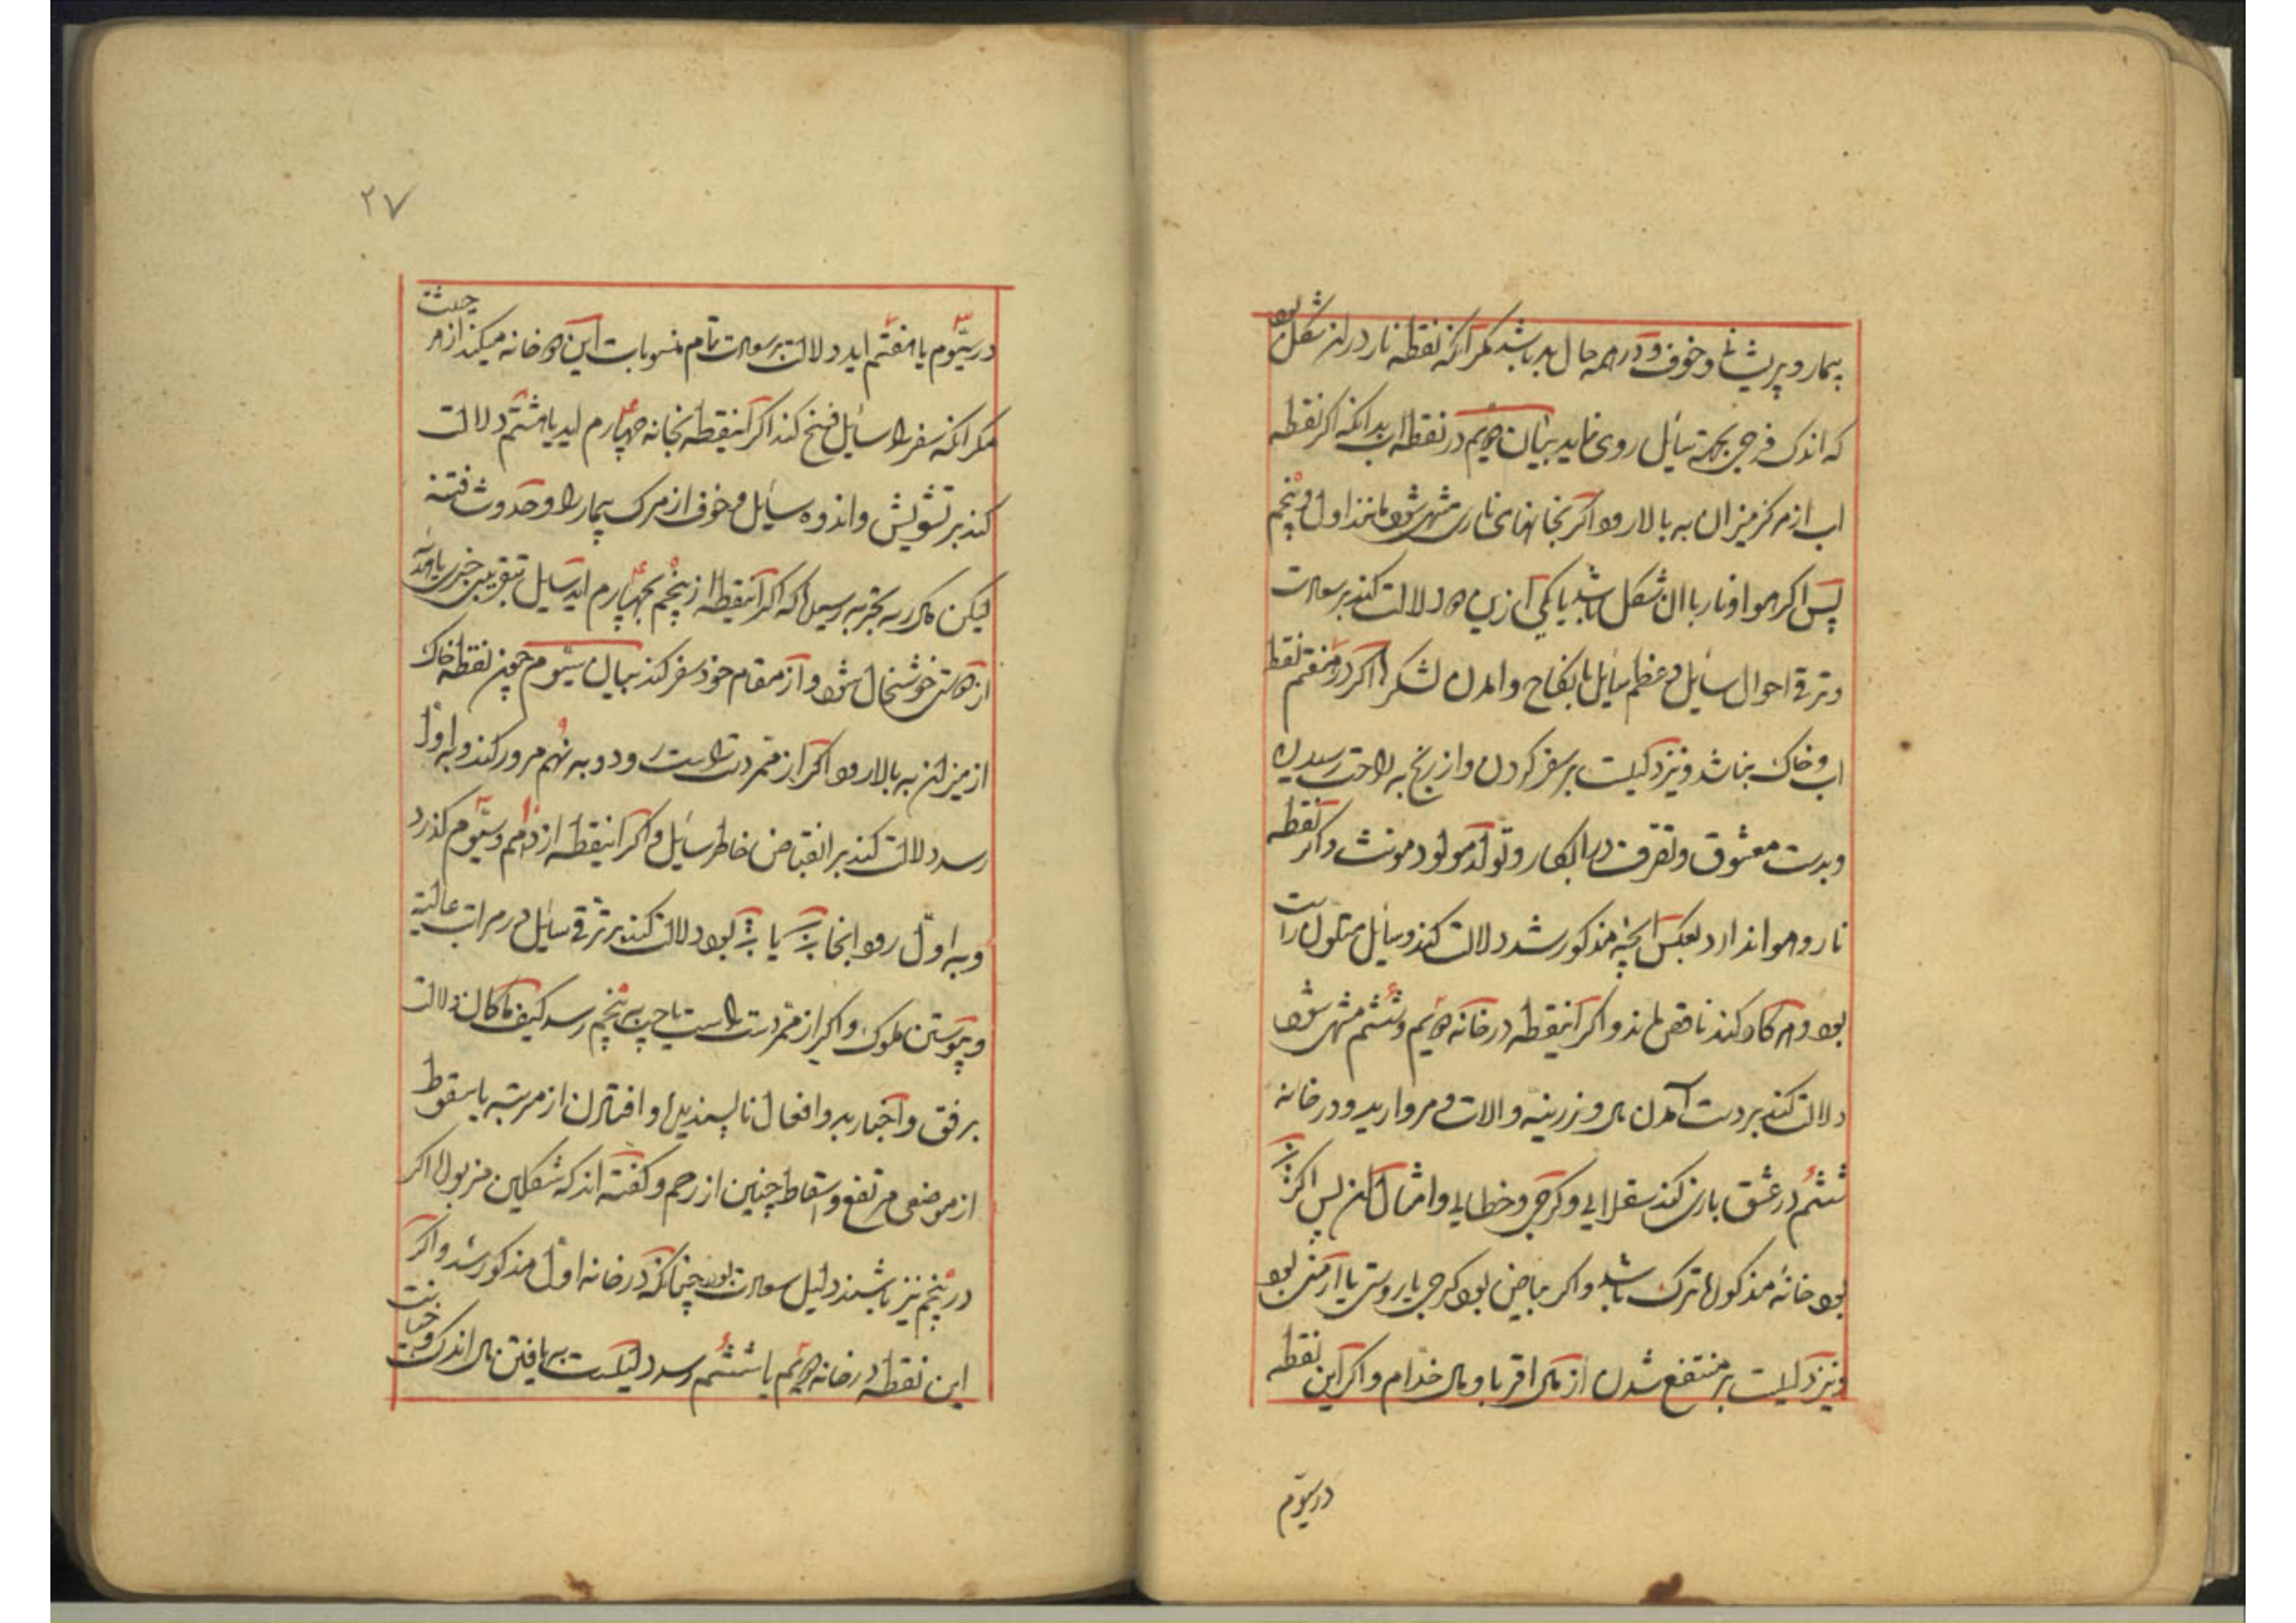 بیمار و پریشانی و خوف و در همه حال بد باشد مگر آنکه نقطه نار در ان شکل بود
که اندک فرحی بجهة سایل روی نماید بیان دویم در نقطه اب بدانکه اگر نقطه
اب از مرکز میزان به بالا رود اگر بخانهای ناری منتهی شود مانند اول و پنجم
پس اگر هوا و نار با ان شکل باشد یا یکی ازین دو دلالت کند بر سعادت
و ترقی احوال سایل و عظم سایل یا نکاح و امدن لشکر و اگر در هفتم نقطه
اب و خاک بباشد و نیز دلیلست بر سفر کردن و از رنج به راحت رسیدن
و بدست معشوق و تصرف در ابکار و تولد مولود مونث و اگر نقطه
نار و هوا ندارد بعکس انچه مذکور شد دلالت کند و سایل متلون رایست
بود و هر کار کند ناقص ماند و اگر آنقطه در خانه دویم و ششم منتهی شود
دلالت کند بر دست آمدن مال و زرینه و الات و مروارید و در خانه
ششم در عشق بازی کند سقلابی و کرجی و خطایی و امثال ان پس اگر
بود خانهٔ مذکوره ترک باشد و اگر بیاض بود کرجی یا روسی یا ارمنی بود
و نیز دلیلست بر منتفع شدن از مال اقربا و مال خدام و اگر این نقطه
در سیوم
۲۷
در سیوم یا هفتم اید دلالت بر سعادت تام منسوبات این دو خانه میکند از هر جهت
مگر انکه سفر را سایل فسخ کند اگر آنقطه بخانه چهارم اید یا هشتم دلالت
کند بر تشویش و اندوه سایل و خوف از مرک بیمار را و حدوث فتنه
لیکن مکرر به تجربه رسید که اگر آنقطه از پنجم بچهارم اید سایل بتقریبی خبری یا
از دوستی خوشحال شود و از مقام خود سفر کند بیان سیوم چون نقطه خاک
از میزان به بالا رود اگر از ممر دست راست رود و به نهم مرور کند و به اول
رسد دلالت کند بر انقباض خاطر سایل و اگر آنقطه از دهم و سیوم گذرد
و به اول رود انجا یا بود دلالت کند بر ترقی سایل در مراتب عالیة
و پیوستن ملوک و اگر از ممر دست راست یا چپ به پنجم رسد کیف ما کان دلالت
بر فق و اخبار بد و افعال ناپسندیده و افتادن از مرتبه یا سقوط
از موضعی مرتفع و اسقاط جنین از رحم و گفته اند که شکلین مزبور اگر
در پنجم نیز باشند دلیل سعادت بود چنانکه در خانه اول مذکور شد و اگر
این نقطه در خانه دویم یا ششم رسد دلیلست به یافتن مال اندک و خیانت